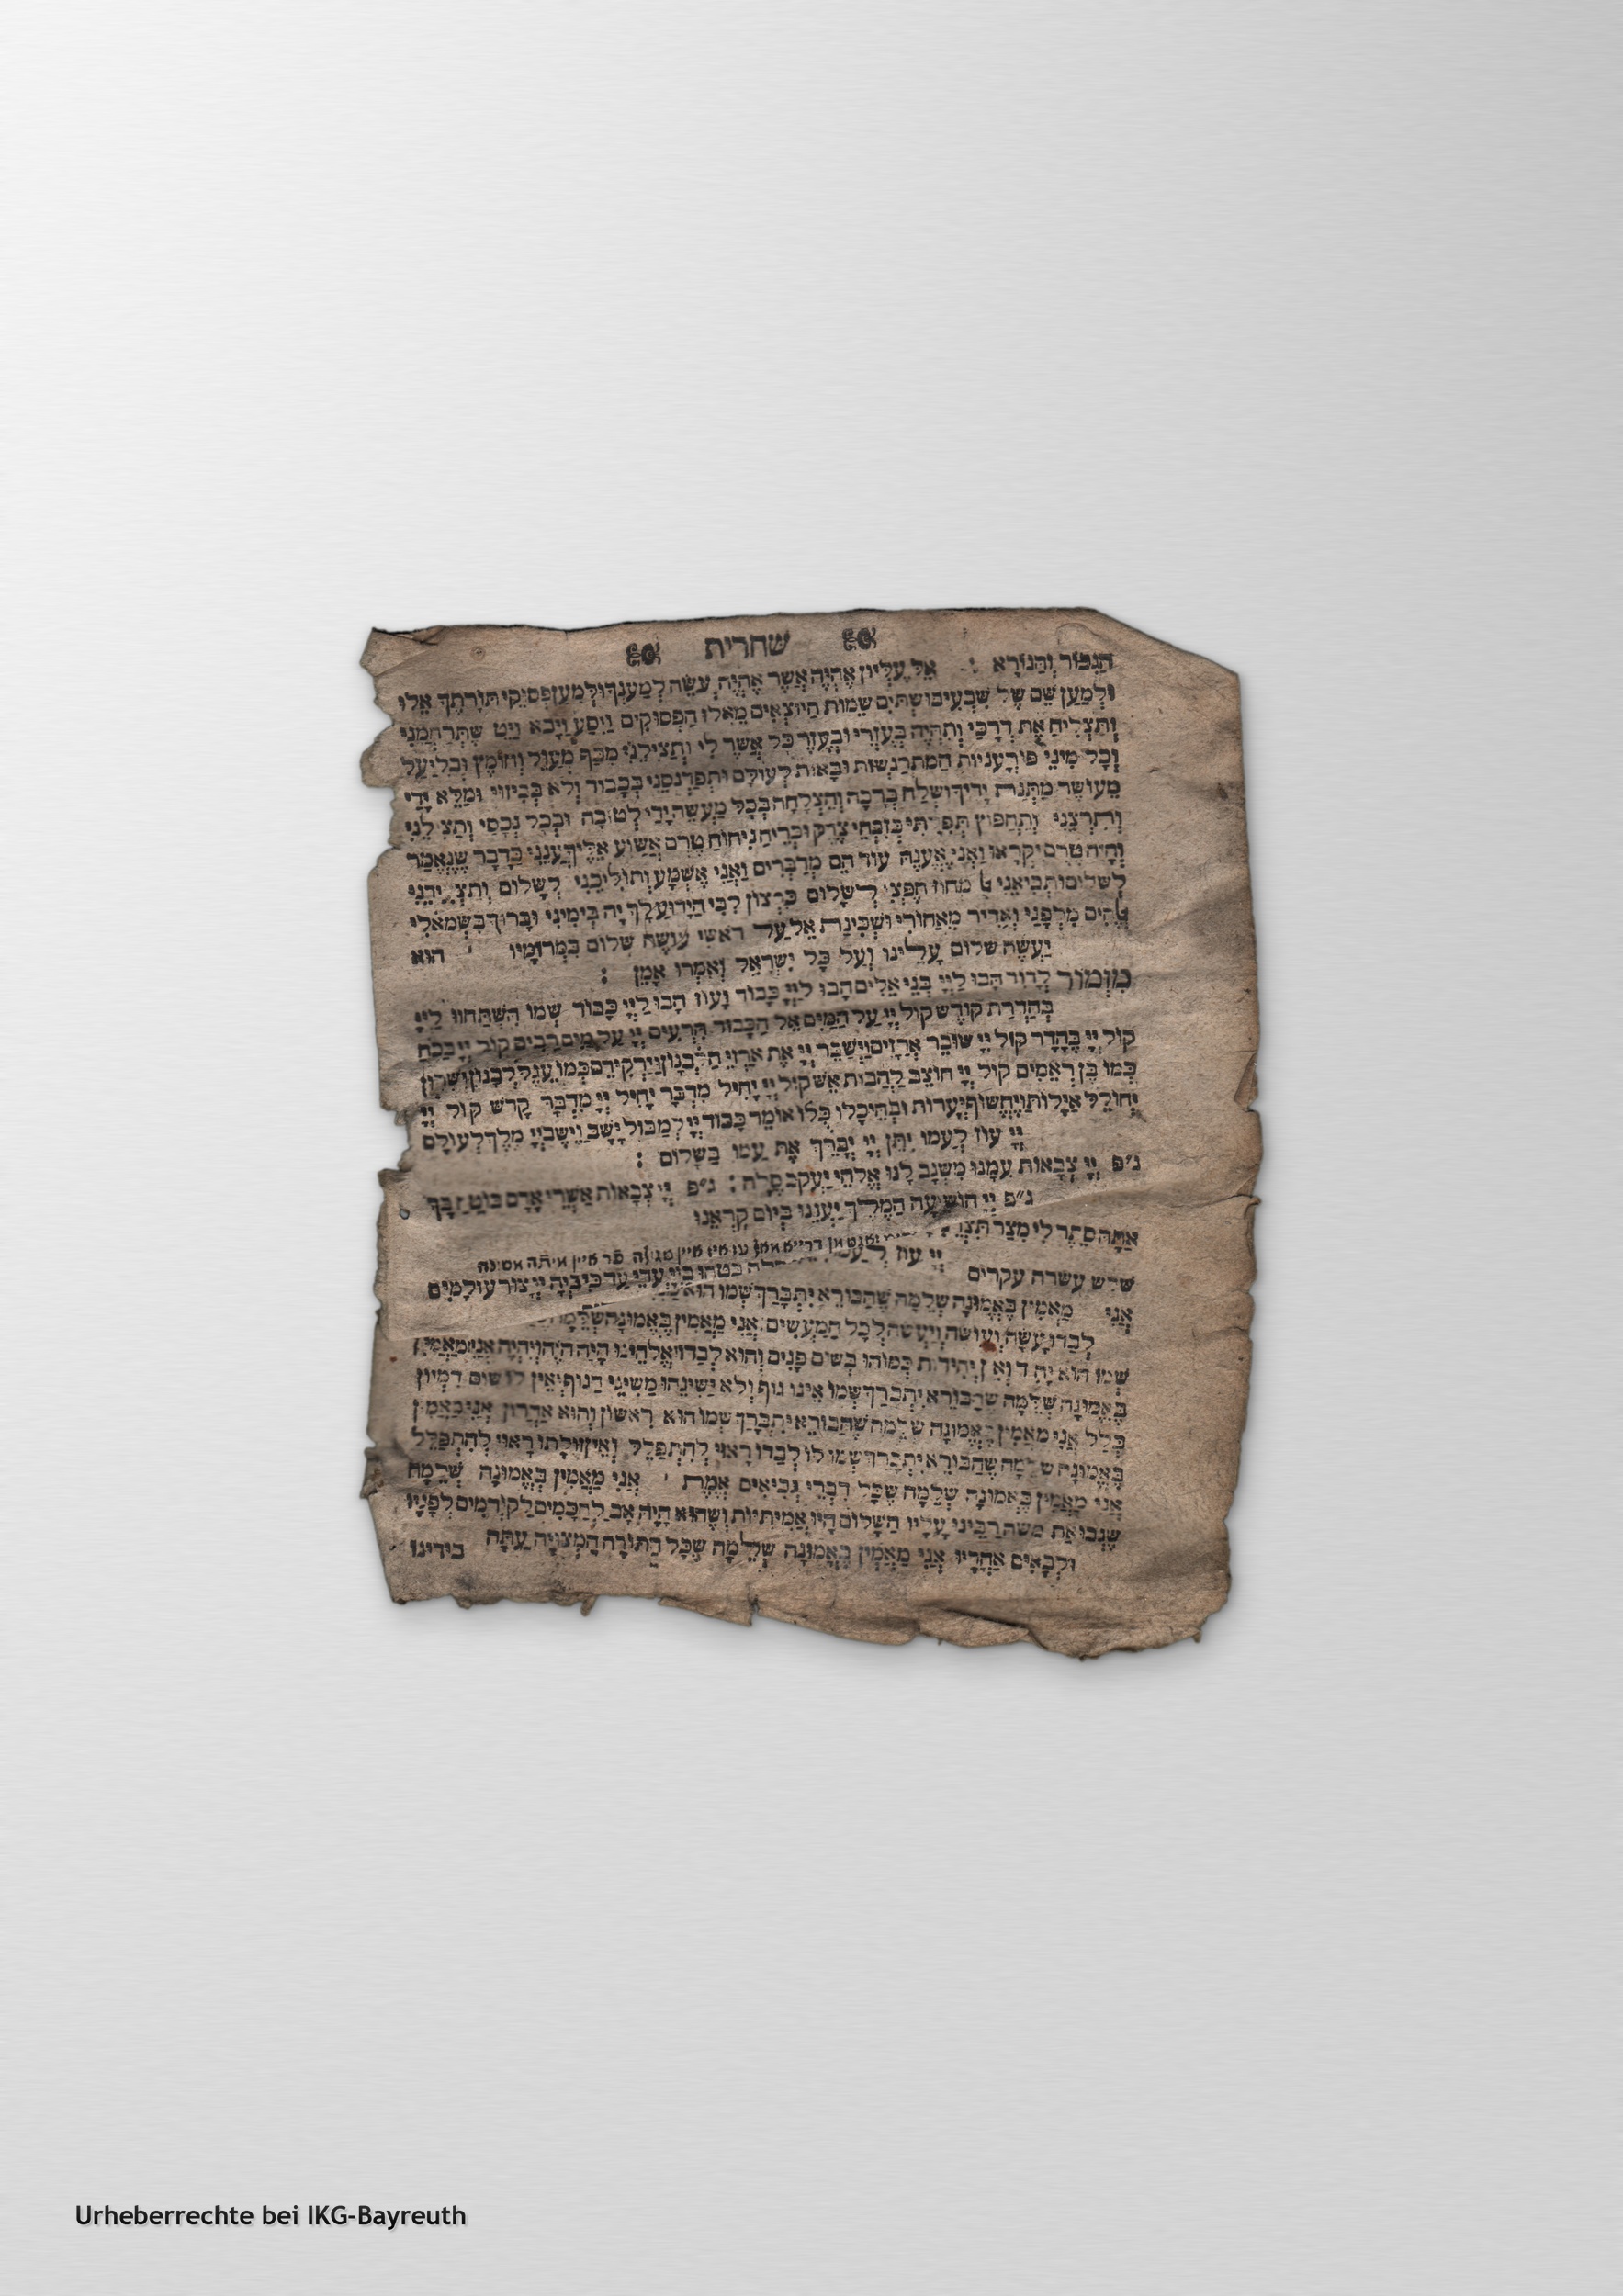 שחרית
הגבור והנורא : אל עליון אהיה אשר אהיה עשה למענך ולמען פסיקי תורתך אלו
ולמען שם של שבעים ושתים שמות היוצאים מאלו הפסוקים ויסע ויבא ויט שתרחמני
ותצליח את דרכי ותהיה בעזרי ובעזר כל אשר לי ותצילני מכף מעול וחומץ ובליעל
וכל מיני פורעניות המתרגשות ובאות לעולם ותפרנסני בכבוד ולא בביזוי ומלא ידי
מעושר מתנת ידיך ושלח ברכה והצלחה בכל מעשה ידי לטובה ובכל נכסי
ותרצני ותחפוץ בזבחי צדק וכריח ניחוח טרם אשוע אליך ענני כדבר שנאמר
והיה טרם יקראו ואני אענה עוד הם מדברים ואני אשמע ותוליכני לשלום
לשלום ותביאני מחוז חפצי לשלום כרצון לבי הידוע לך יה בימיני וברוך בשמאלי
מלפני ואדיר מאחורי ושכינת אל על ראשי עושה שלום במרומיו הוא
יעשה שלום עלינו ועל כל ישראל ואמרו אמן :
מזמור לדוד הבו ליי בני אלים הבו ליי כבוד ועוז הבו ליי כבוד שמו השתחוו ליי
בהדרת קודש קול יי על המים אל הכבוד הרעים יי על מים רבים קול יי בכח
קול יי בהדר קול יי שובר ארזים וישבר יי את ארזי הלבנון וירקידם כמו עגל לבנון ושריון
כמו בן ראמים קול יי חוצב להבות אש קול יי יחיל מדבר יחיל יי מדבר קדש קול יי
יחולל אילות ויחשוף יערות ובהיכלו כלו אומר כבוד יי למבול ישב וישב יי מלך לעולם
יי עוז לעמו יתן יי יברך את עמו בשלום :
ג״פ יי צבאות עמנו משגב לנו אלהי יעקב סלה : ג״פ יי צבאות אשרי אדם בוטח בך
ג״פ יי הושיעה המלך יעננו ביום קראנו
אתה סתר לי מצר
יי עוז
שלש עשרה עקרים בטחו ביי עדי עד כי ביה יי צור עולמים
אני מאמין באמונה שלמה שהבורא יתברך שמו הוא
לבדו עשה ועושה ויעשה לכל המעשים : אני מאמין באמונה שלמה
שמו הוא יחיד ואין יחידות כמוהו בשום פנים והוא לבדו אלהינו היה הוה ויהיה אני מאמין
באמונה שלמה שהבורא יתברך שמו אינו גוף ולא ישיגהו משיגי הגוף ואין לו שום דמיון
כלל אני מאמין באמונה שלמה שהבורא יתברך שמו הוא ראשון והוא אחרון אני מאמין
באמונה שלמה שהבורא יתברך שמו לו לבדו ראוי להתפלל ואין זולתו ראוי להתפלל
אני מאמין באמונה שלמה שכל דברי נביאים אמת אני מאמין באמונה שלמה
שנבואת משה רבינו עליו השלום היו אמיתיות ושהוא היה אב לחכמים לקודמים לפניו
ולבאים אחריו אני מאמין באמונה שלמה שכל התורה המצויה עתה בידינו
Urheberrechte bei IKG-Bayreuth